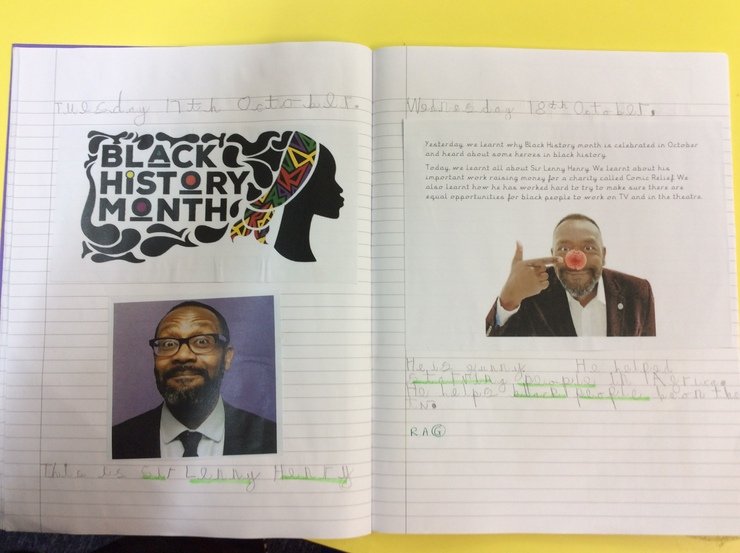 Tuesday 17th October.
BLACK
HISTORY
MONTH
This is Sir Lenny Henry
Wednesday 18th October.
Yesterday, we learnt why Black History month is celebrated in October
and heard about some heroes in black history.
Today, we learnt all about Sir Lenny Henry. We learnt about his
important work raising money for a charity called Comic Relief. We
also learnt how he has worked hard to try to make sure there are
equal opportunities for black people to work on TV and in the theatre.
He is funny He helped
people in Africa.
He helps black people be on the
RAG